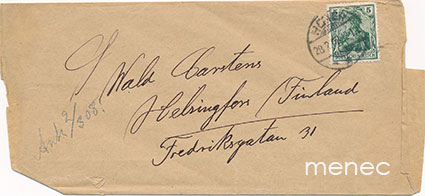 Wald Carstens
Helsingfors / Finland
Fredriksgatan 31
5
menec